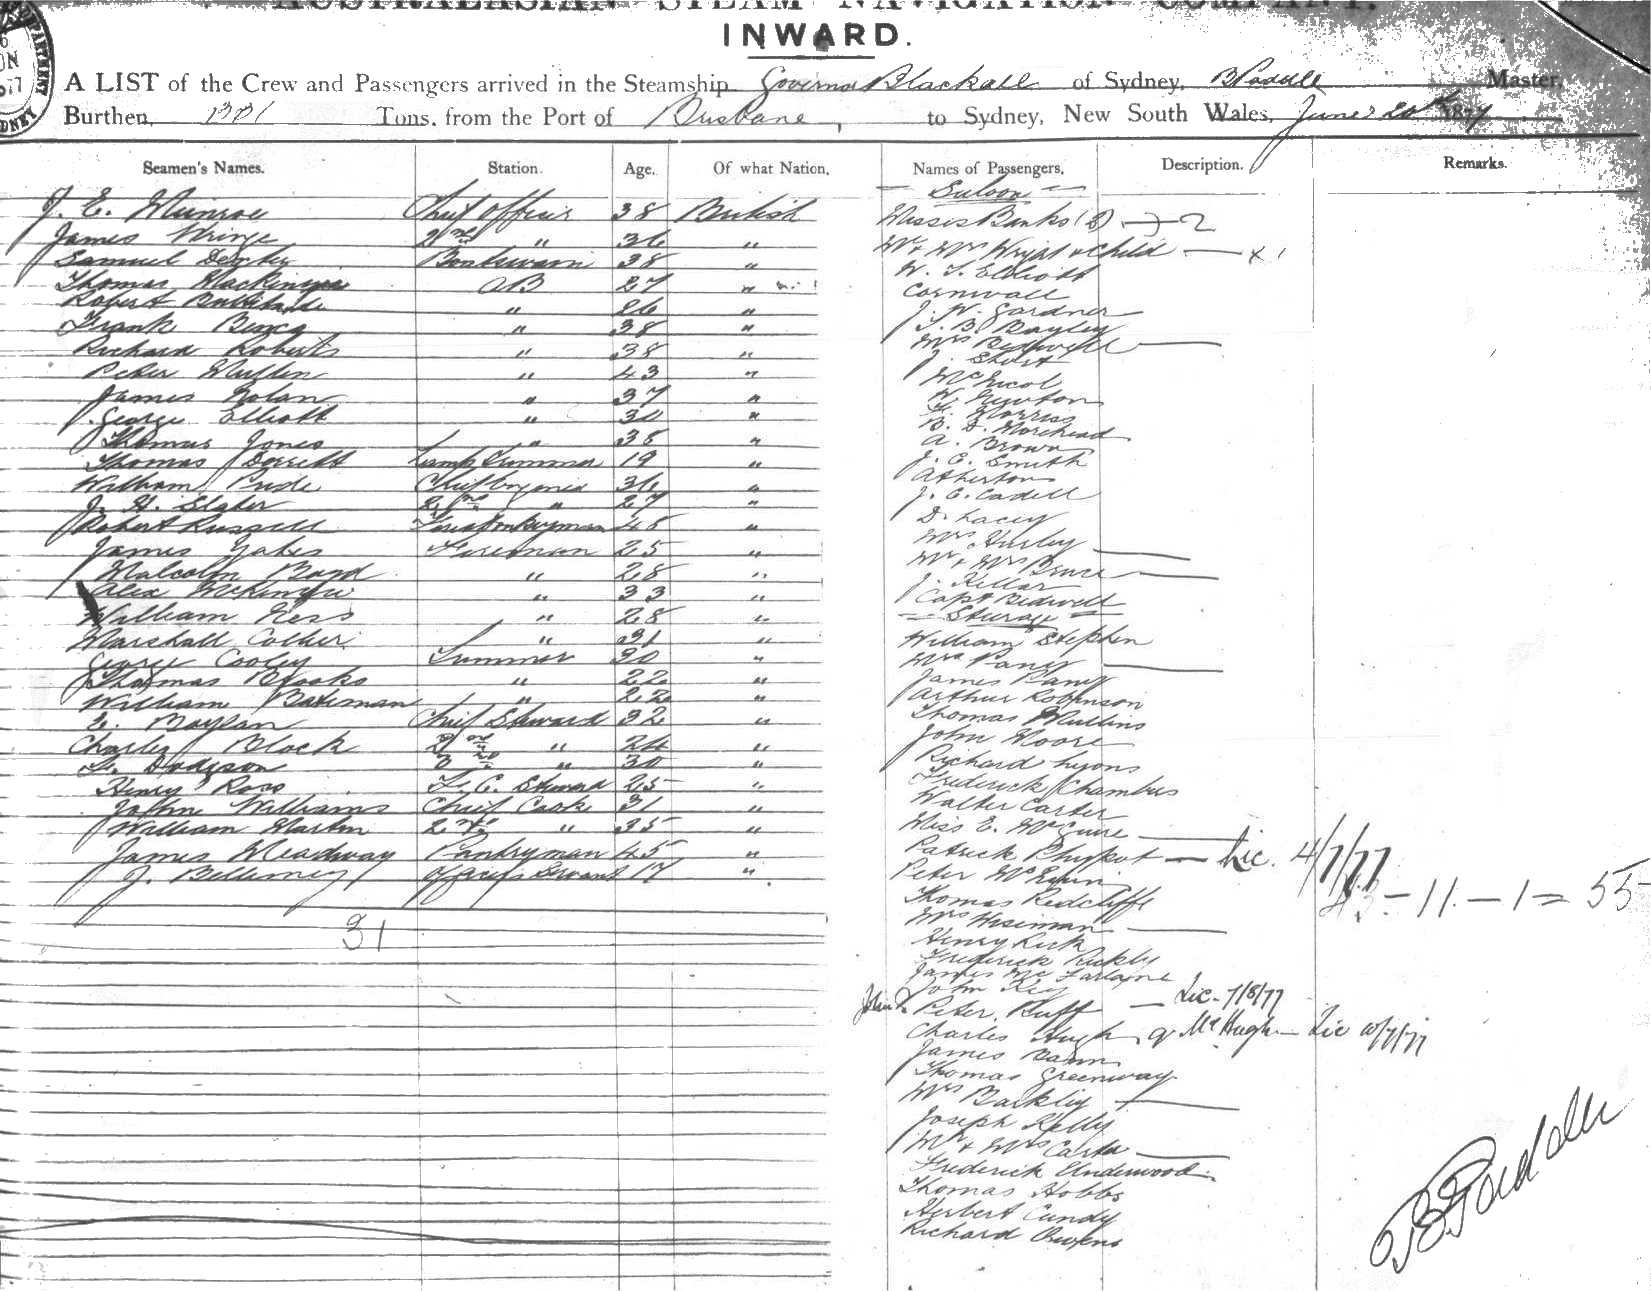 AUSTRALASIAN STEAM NAVIGATION COMPANY.
INWARD.
A LIST of the Crew and Passengers arrived in the Steamship Governor Blackall of Sydney, B Paddle Master,
Burthen, Tons, from the Port of Brisbane, to Sydney, New South Wales, June 187
Seamen's Names. Station. Age. Of what Nation. Names of Passengers. Description. Remarks.
J. E. Munroe Chief Officer 38 British
James 2nd " 36 "
Samuel Boatswain 38 "
Thomas Mackenzie AB 27 "
Robert " 26 "
Frank " 38 "
Richard Roberts " 38 "
Peter Mullin " 43 "
James Nolan " 37 "
George Elliott " 30 "
Thomas Jones " 35 "
Thomas Lamp Trimmer 19 "
William Pride Chief Engineer 36 "
J. H. Slater 2nd " 27 "
Robert Russell 45 "
James Yates Fireman 25 "
Malcolm Boyd " 28 "
Alex McKenzie " 33 "
William Ness " 28 "
Marshall Collier " 31 "
George Cooley Trimmer 30 "
Thomas Brooks " 22 "
William Bateman " 22 "
Boylan Chief Steward 32 "
Charles Black 2nd " 24 "
Dodgson 3rd " 30 "
Henry Ross F. C. Steward 25 "
John Williams Chief Cook 31 "
William Martin 2nd " 35 "
James Meadway Pantryman 45 "
J. Bellamy Officers Servant 17 "
31
Saloon
Misses Banks (2) 2
Mr & Mrs Wright & Child
W. Elliott
Cornwall
J. W. Gardner
Bayley
Mrs Bedwell
J. Short
McNicol
W. Newton
Morriss
B. D. Morehead
A. Brown
J. E. Smith
Atherton
J. C. Cadell
D. Lacey
Mrs Hurley
Mr & Mrs Bruce
J. Kellar
Capt Bedwell
Steerage
William Stephen
Mrs Pany
James Pany
Arthur Robinson
Thomas Mullins
John Moore
Richard Lyons
Frederick Chambers
Walter Carter
Miss E. McGuire
Patrick — Lic. 4/7/77
Peter
Thomas Redcliffe
Mrs Wiseman
Henry Kirk
Frederick
James McFarlane
John Key
Peter Buff — Lic - 7/8/77
Charles Hugh or McHugh — Lic 10/7/77
James Vann
Thomas Greenway
Mrs Barkley
Joseph Kelly
Mr & Mrs Carter
Frederick Underwood
Thomas Hobbs
Herbert Cundy
Richard Owens
43 - 11 - 1 = 55
B Paddle